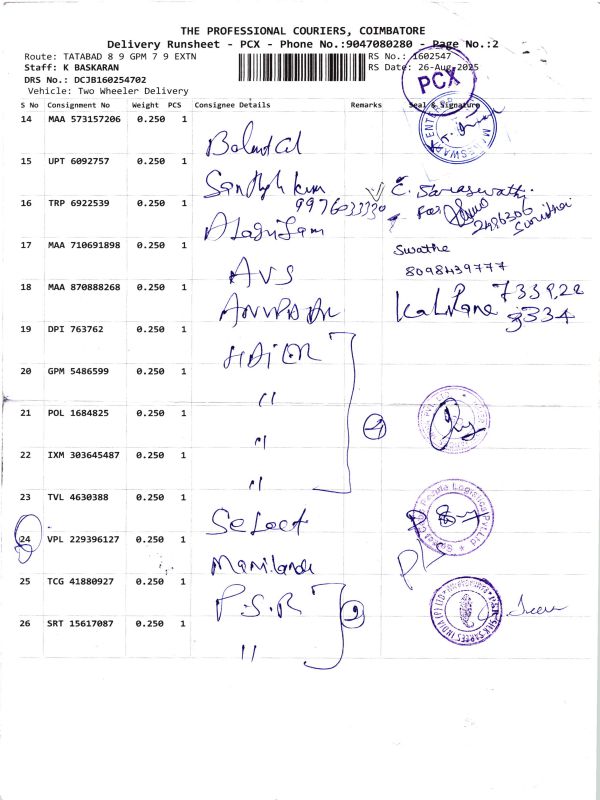 THE PROFESSIONAL COURIERS, COIMBATORE
Delivery Runsheet - PCX - Phone No.:9047080280 - Page No.:2
Route: TATABAD 8 9 GPM 7 9 EXTN
RS No.: 1602547
Staff: K BASKARAN
RS Date: 26-Aug-2025
DRS No.: DCJB160254702
Vehicle: Two Wheeler Delivery
PCX
S No Consignment No Weight PCS Consignee Details Remarks Seal & Signature
14 MAA 573157206 0.250 1
15 UPT 6092757 0.250 1
16 TRP 6922539 0.250 1
9976033330
For
2486306
17 MAA 710691898 0.250 1 AVS
Swathe
8098439777
18 MAA 870888268 0.250 1
Kalpana 733928
3334
19 DPI 763762 0.250 1
20 GPM 5486599 0.250 1 "
21 POL 1684825 0.250 1 "
4
22 IXM 303645487 0.250 1 "
23 TVL 4630388 0.250 1 Select
24 VPL 229396127 0.250 1
25 TCG 41880927 0.250 1 P.S.R
2
26 SRT 15617087 0.250 1 "